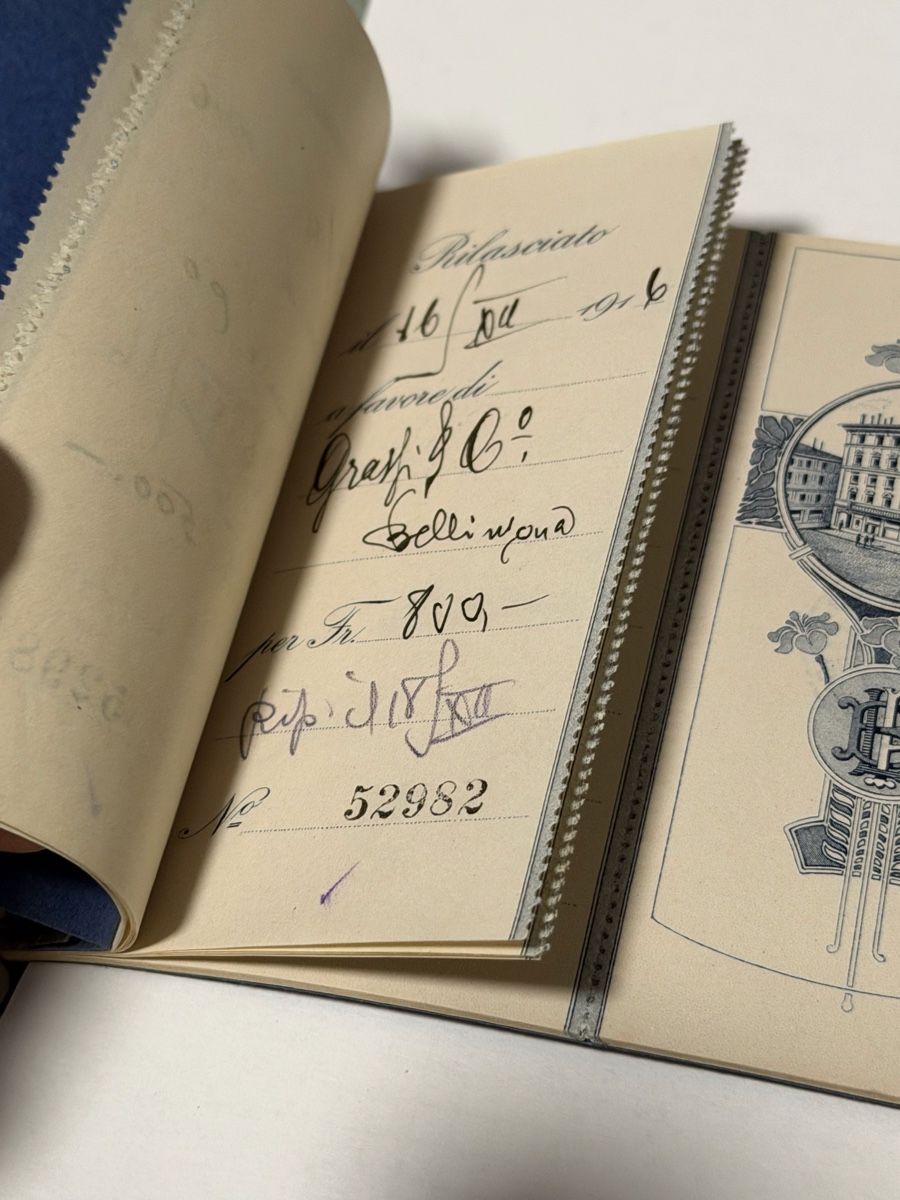 Rilasciato
il 16/XII 1916
a favore di
Grassi & Co.
Bellinzona
per Fr. 800,—
Risp. il 18/XII
No 52982